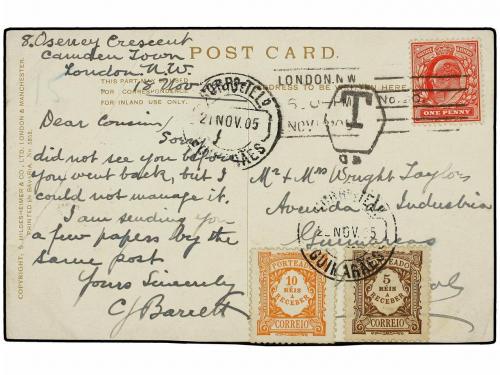 8. Oseney Crescent
Camden Town
London. N.W.
Nov
POST CARD.
THIS PART MAY BE USED
FOR CORRESPONDENCE
FOR INLAND USE ONLY.
ADDRESS TO BE
Dear Cousin/
Sorry
did not see you before
you went back, but I
could not manage it.
I am sending you
a few papers by the
same post
Yours Sincerely
C J Barrett
COPYRIGHT. S. HILDESHEIMER & CO., LTD. LONDON & MANCHESTER.
PRINTED IN BAVARIA
21 NOV. 05
GUIMARÃES
LONDON. N.W
NOV
T
ONE PENNY
Mr & Mrs Wright Taylor
Avenida Industria
Guimaraes
NOV. 05
GUIMARÃES
PORTEADO
10
RÉIS
A
RECEBER
CORREIO
PORTEADO
5
RÉIS
A
RECEBER
CORREIO